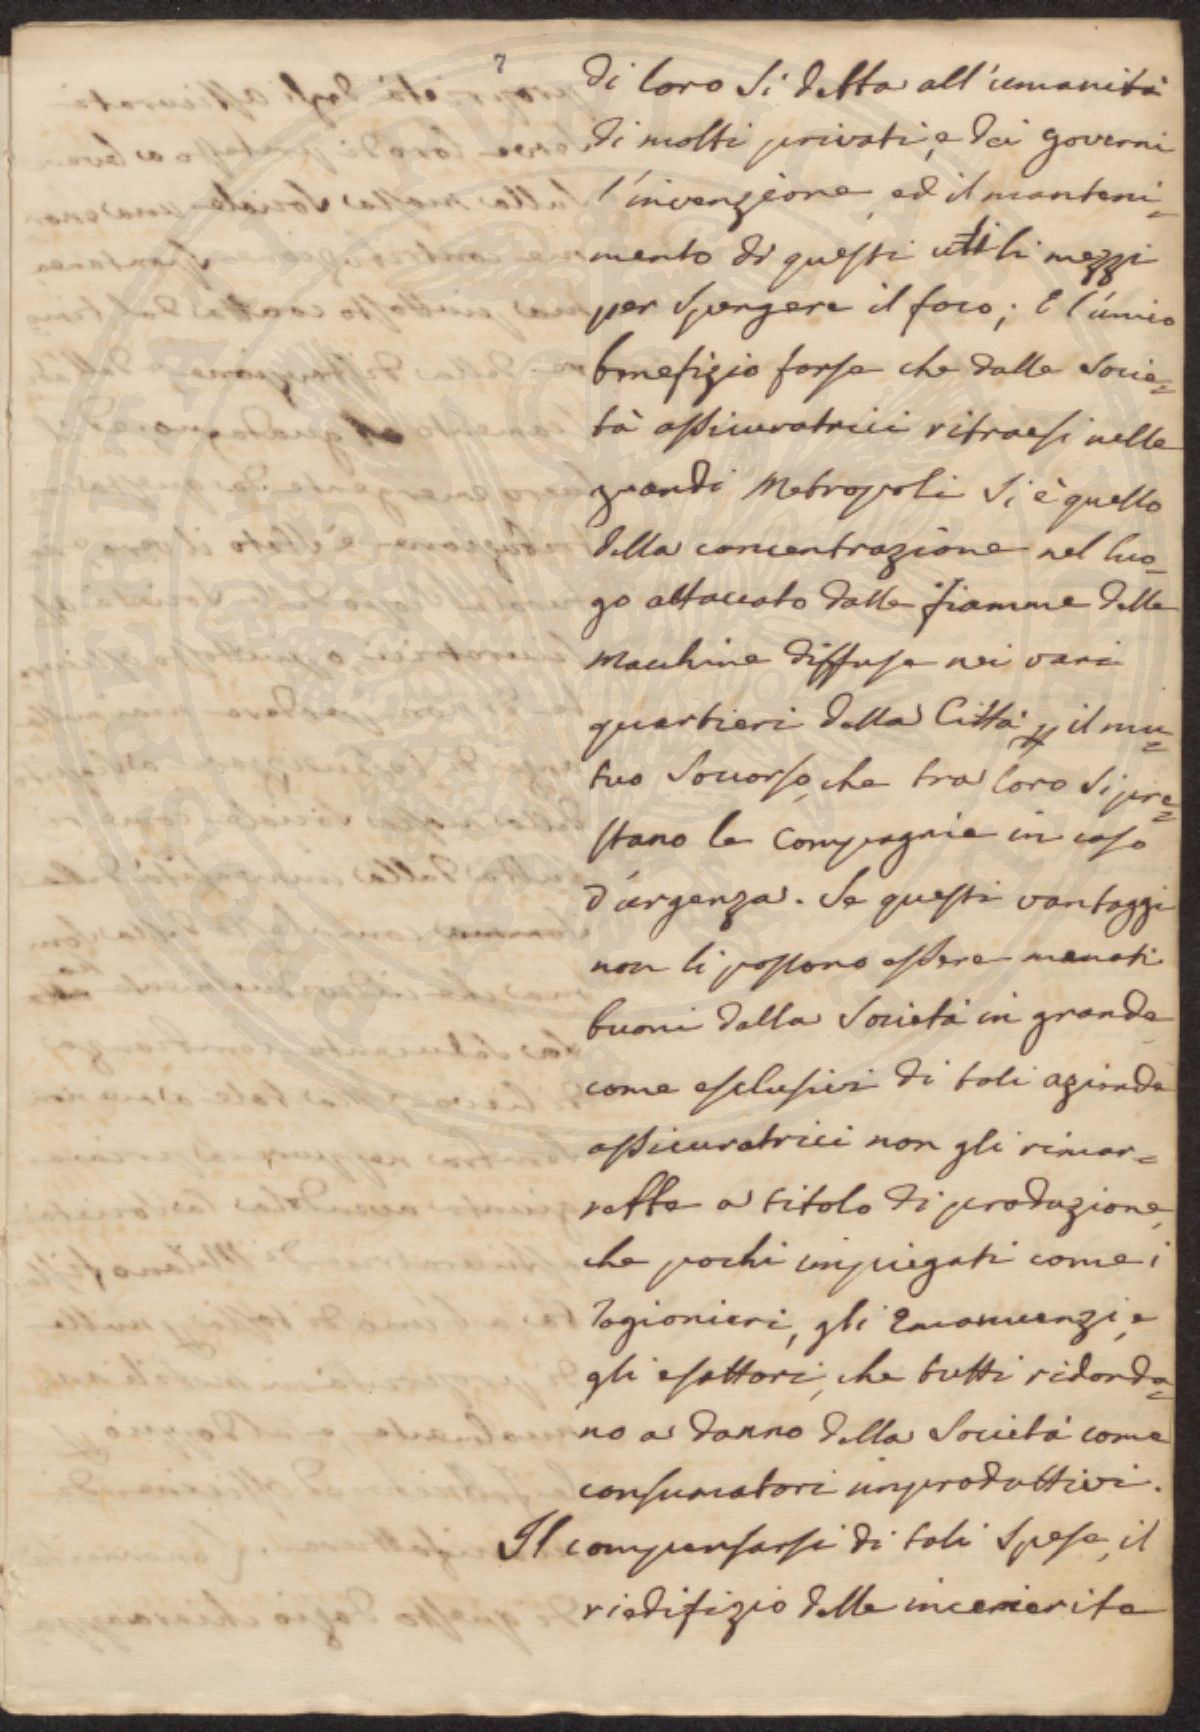 7
di loro si detta all'umanità
di molti privati, e dei Governi
l'invenzione, ed il manteni=
mento di questi utili mezzi
per spengere il foco; E l'unico
benefizio forse che dalle Socie=
tà assicuratrici ritraesi nelle
grandi Metropoli si è quello
della concentrazione nel luo=
go attaccato dalle fiamme delle
Macchine diffuse nei vari
quartieri della Città, il mu=
tuo Soccorso, che tra loro si pre=
stano le Compagnie in caso
d'urgenza. Se questi vantaggi
non li possono essere menati
buoni dalla Società in grande
come esclusivi di tali aziende
assicuratrici non gli rimar=
rebbe a titolo di produzione,
che pochi impiegati come i
Ragionieri, gli e
gli esattori, che tutti ridonda=
no a danno della Società come
consumatori improduttivi.
Il compensarsi di tali Spese, il
riedifizio delle incenerite